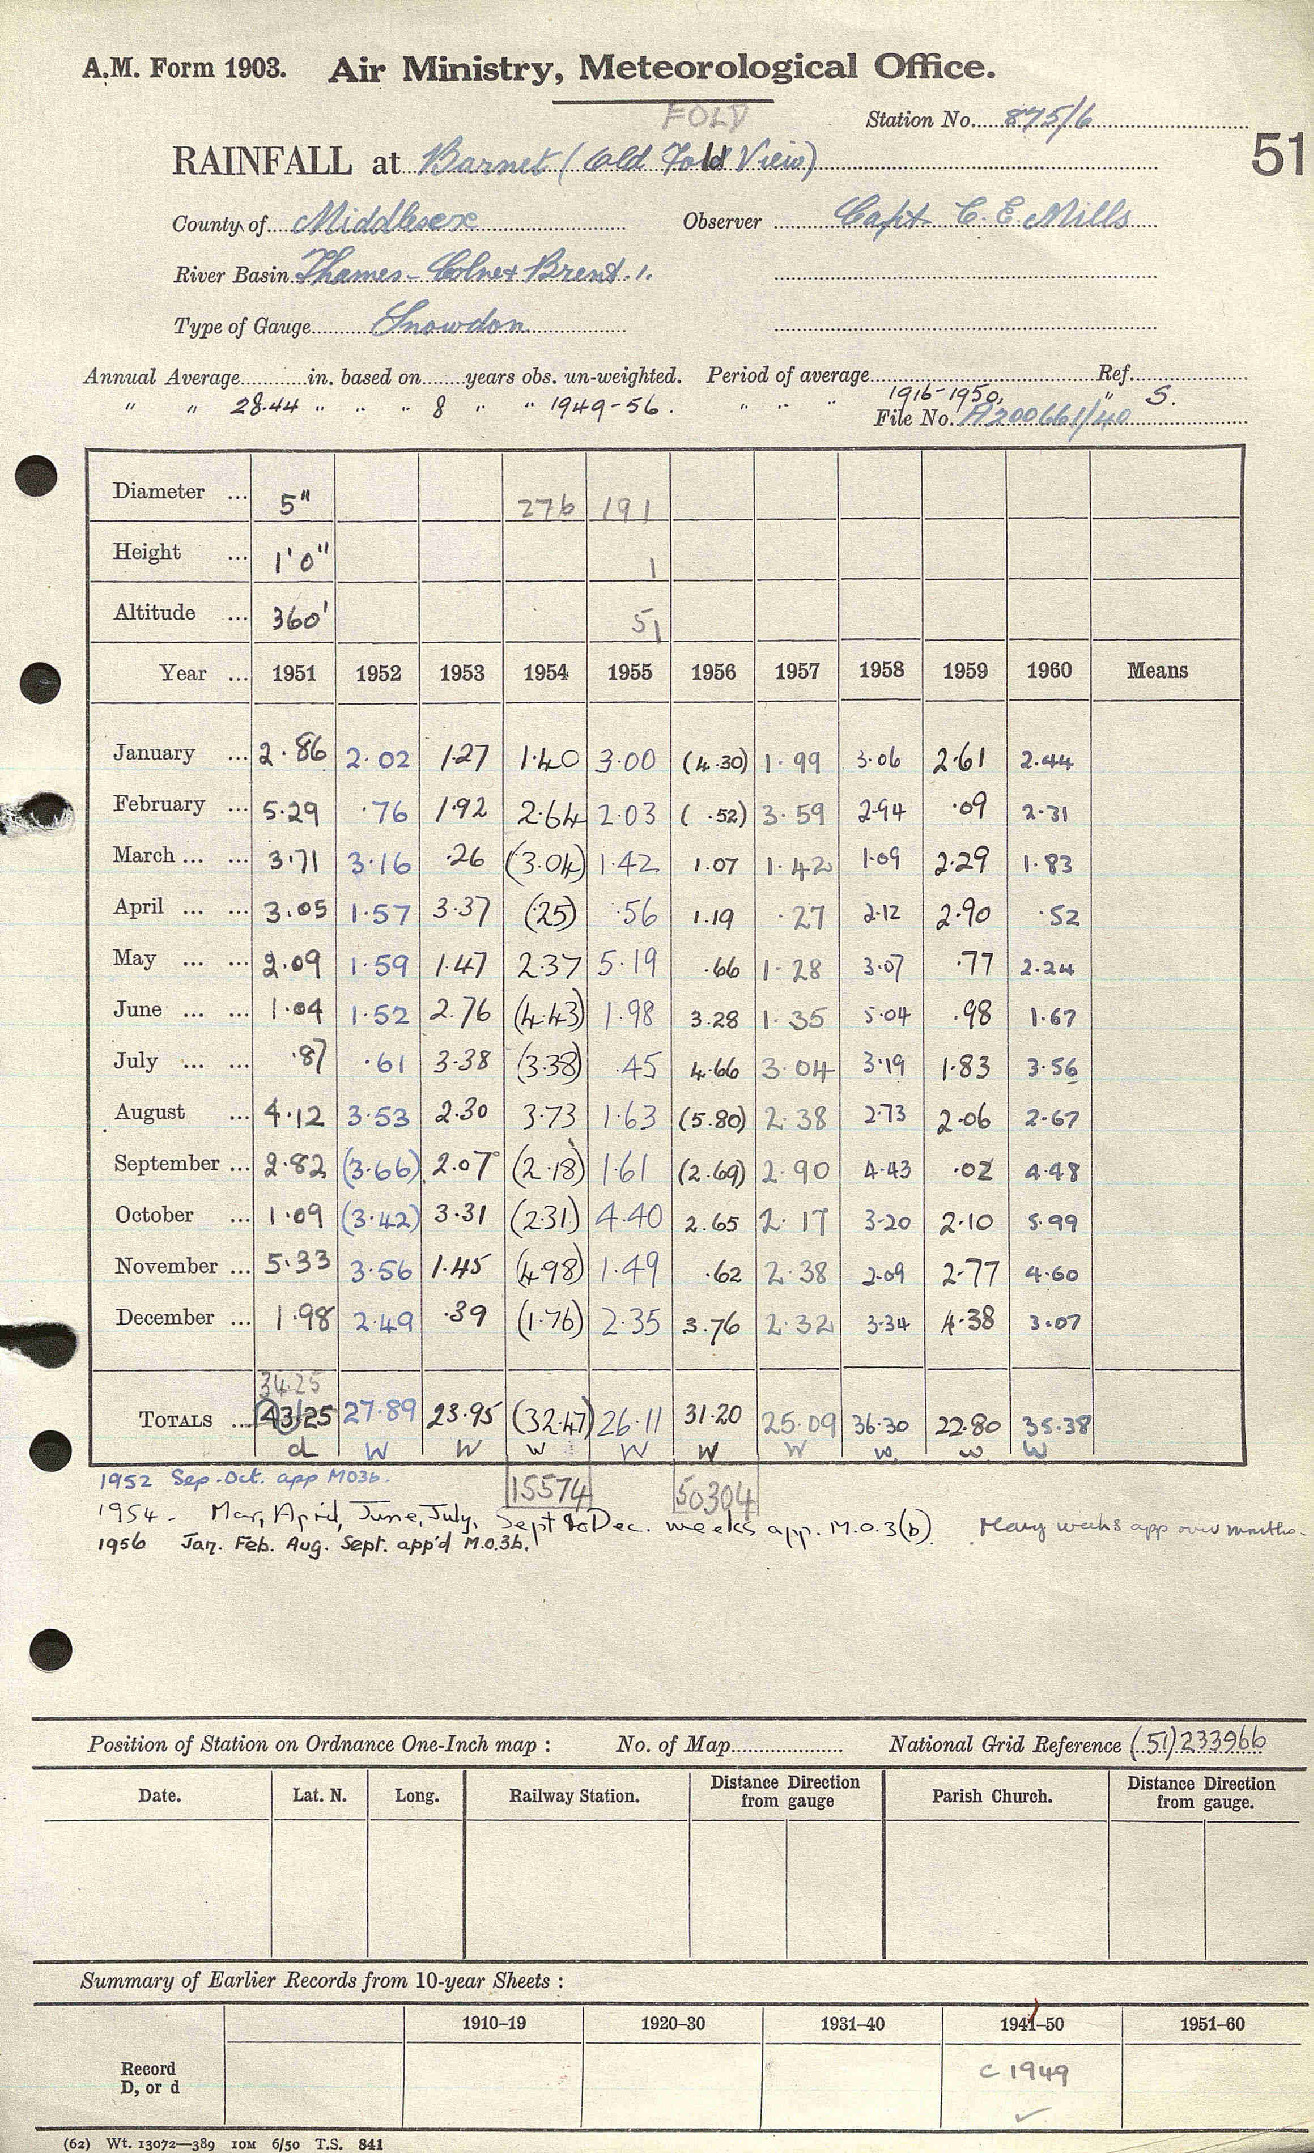 A.M. Form 1903. Air Ministry, Meteorological Office.
FOLD
Station No. 875/6
51
RAINFALL at Barnet (Old Fold View)
County of Middlesex Observer Capt C. E. Mills
River Basin Thames - Colne & Brent 1.
Type of Gauge Snowdon
Annual Average in. based on years obs. un-weighted. Period of average Ref.
" " 28.44 " " " 8 " " 1949-56. " " " 1916-1950, " S.
File No. A200661/40
Diameter ... 5" 276 191
Height ... 1'0" 1
Altitude ... 360' 51
Year ... 1951 1952 1953 1954 1955 1956 1957 1958 1959 1960 Means
January ... 2.86 2.02 1.27 1.40 3.00 (4.30) 1.99 3.06 2.61 2.44
February ... 5.29 .76 1.92 2.64 2.03 ( .52) 3.59 2.94 .09 2.31
March ... ... 3.71 3.16 .26 (3.04) 1.42 1.07 1.42 1.09 2.29 1.83
April ... ... 3.05 1.57 3.37 (.25) .56 1.19 .27 2.12 2.90 .52
May ... ... 2.09 1.59 1.47 2.37 5.19 .66 1.28 3.07 .77 2.24
June ... ... 1.04 1.52 2.76 (4.43) 1.98 3.28 1.35 5.04 .98 1.67
July ... ... .87 .61 3.38 (3.38) .45 4.66 3.04 3.19 1.83 3.56
August ... 4.12 3.53 2.30 3.73 1.63 (5.80) 2.38 2.73 2.06 2.67
September ... 2.82 (3.66) 2.07 (2.18) 1.61 (2.69) 2.90 4.43 .02 4.48
October ... 1.09 (3.42) 3.31 (2.31) 4.40 2.65 2.17 3.20 2.10 5.99
November ... 5.33 3.56 1.45 (4.98) 1.49 .62 2.38 2.09 2.77 4.60
December ... 1.98 2.49 .39 (1.76) 2.35 3.76 2.32 3.34 4.38 3.07
34.25
TOTALS ... 43.25 27.89 23.95 (32.47) 26.11 31.20 25.09 36.30 22.80 35.38
d W W W W W W W W W
1952 Sep-Oct. app M03b. 15574 50304
1954 - Mar, April, June, July, Sept to Dec. weeks app. M.O.3(b). Many weeks app over months.
1956 Jan. Feb. Aug. Sept. app'd M.O.3b.
Position of Station on Ordnance One-Inch map : No. of Map National Grid Reference (51)233966
Date. Lat. N. Long. Railway Station. Distance Direction from gauge Parish Church. Distance Direction from gauge.
Summary of Earlier Records from 10-year Sheets :
1910-19 1920-30 1931-40 1941-50 1951-60
Record D, or d c 1949
(62) Wt. 13072—389 10M 6/50 T.S. 841